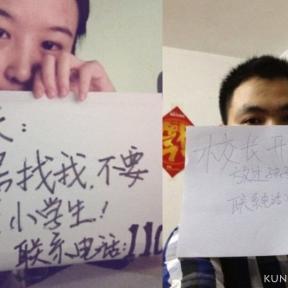 长:
找我,不要
小学生!
联系电话:110
校长开
联系电话
KUN